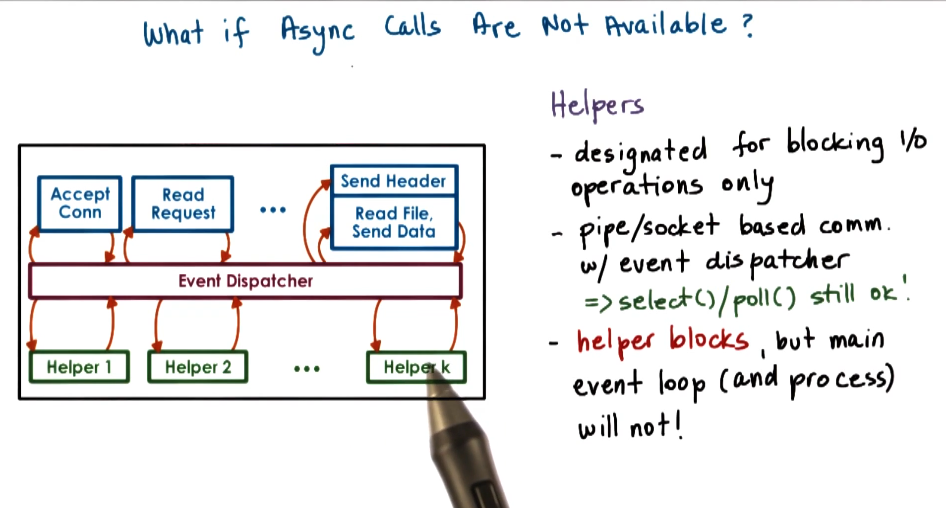 What if Async Calls Are Not Available?
Accept
Conn
Read
Request
...
Send Header
Read File,
Send Data
Event Dispatcher
Helper 1
Helper 2
...
Helper k
Helpers
- designated for blocking I/O
operations only
- pipe/socket based comm.
w/ event dispatcher
=> select()/poll() still ok!
- helper blocks, but main
event loop (and process)
will not!